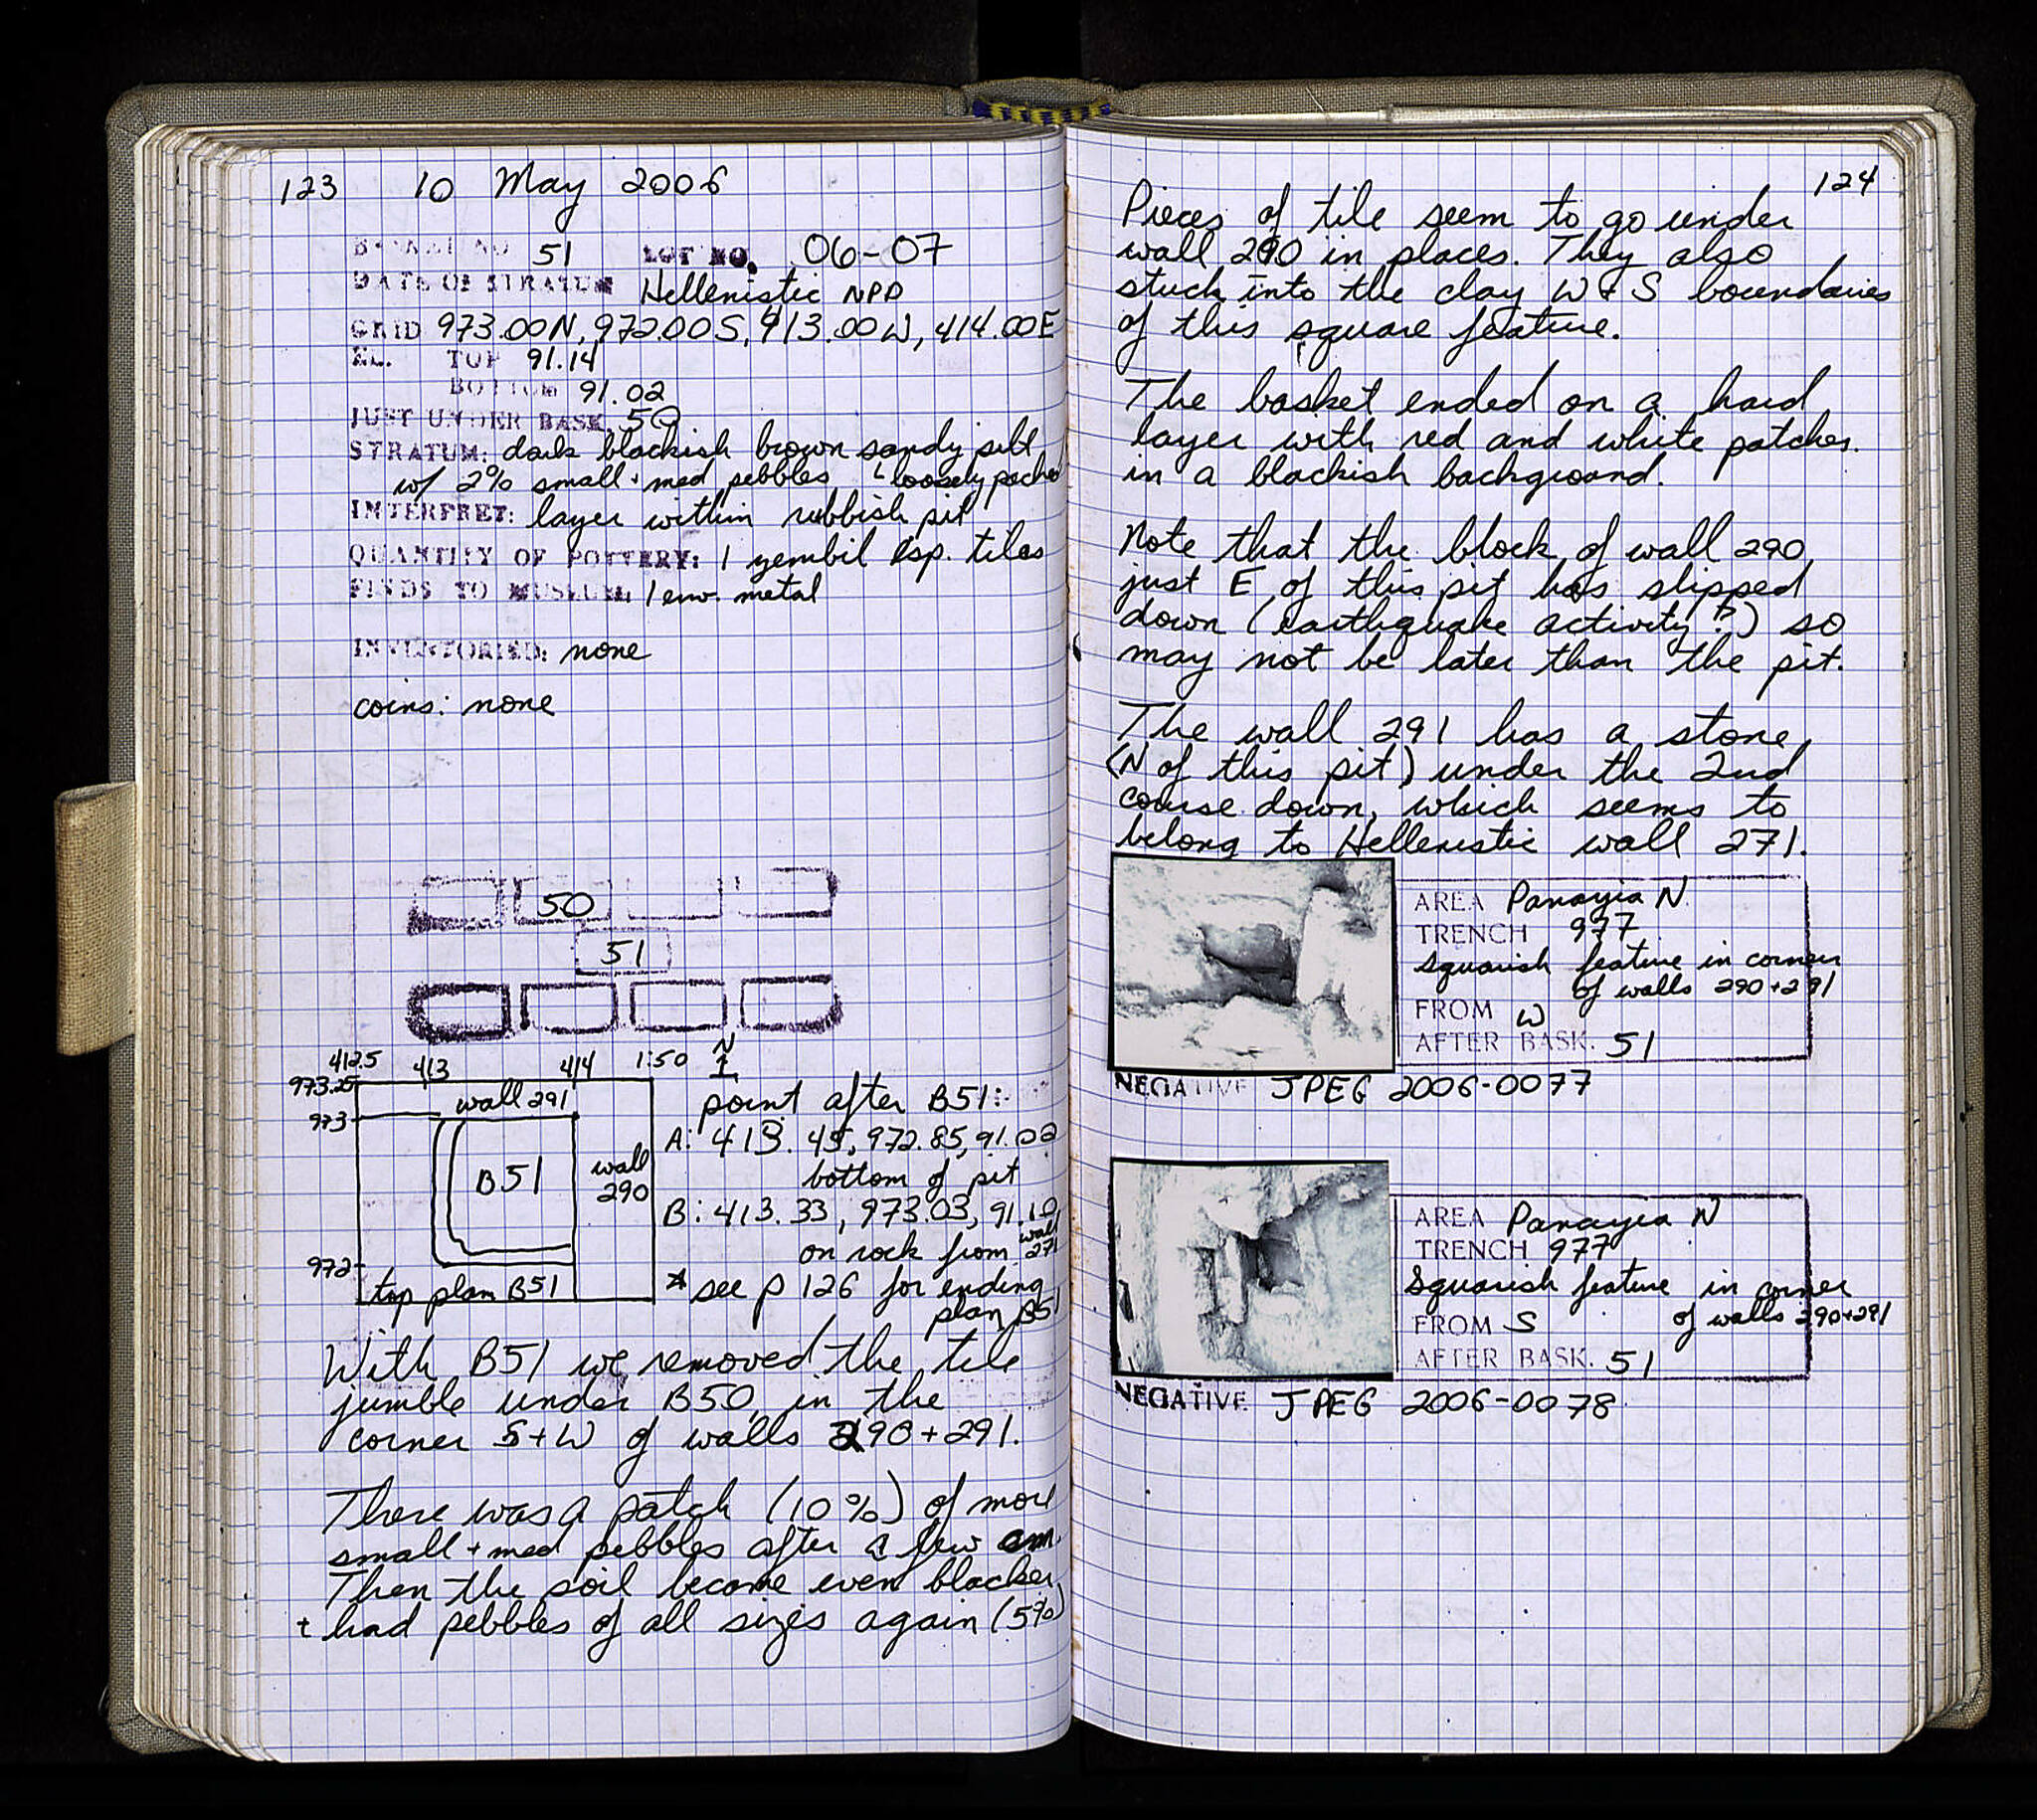 123 10 May 2006
BASKET NO 51 LOT NO. 06-07
DATE OF STRATUM Hellenistic NPD
GRID 973.00N, 972.00S, 413.00W, 414.00E
EL. TOP 91.14
BOTTOM 91.02
JUST UNDER BASK. 50
STRATUM: dark blackish brown sandy silt
w/ 2% small + med pebbles loosely packed
INTERPRET: layer within rubbish pit
QUANTITY OF POTTERY: 1 zembil esp. tiles
FINDS TO MUSEUM: 1 env. metal
INVENTORIED: none
coins: none
50
51
412.5 413 414 1:50 N
973.25
973
972
wall 291
B51
wall
290
top plan B51
point after B51:
A: 413.45, 972.85, 91.02
bottom of pit
B: 413.33, 973.03, 91.10
on rock from wall 271
* see p 126 for ending
plan B51
With B51 we removed the tile
jumble under B50, in the
corner S+W of walls 290+291.
There was a patch (10%) of more
small + med pebbles after a few cm.
Then the soil became even blacker
+ had pebbles of all sizes again (5%)
124
Pieces of tile seem to go under
wall 290 in places. They also
stuck into the clay W + S boundaries
of this square feature.
The basket ended on a hard
layer with red and white patches
in a blackish background.
Note that the block of wall 290
just E of this pit has slipped
down (earthquake activity?) so
may not be later than the pit.
The wall 291 has a stone
(N of this pit) under the 2nd
course down, which seems to
belong to Hellenistic wall 271.
AREA Panayia N
TRENCH 977
squarish feature in corner
of walls 290+291
FROM W
AFTER BASK. 51
NEGATIVE JPEG 2006-0077
AREA Panayia N
TRENCH 977
Squarish feature in corner
FROM S of walls 290+291
AFTER BASK. 51
NEGATIVE JPEG 2006-0078